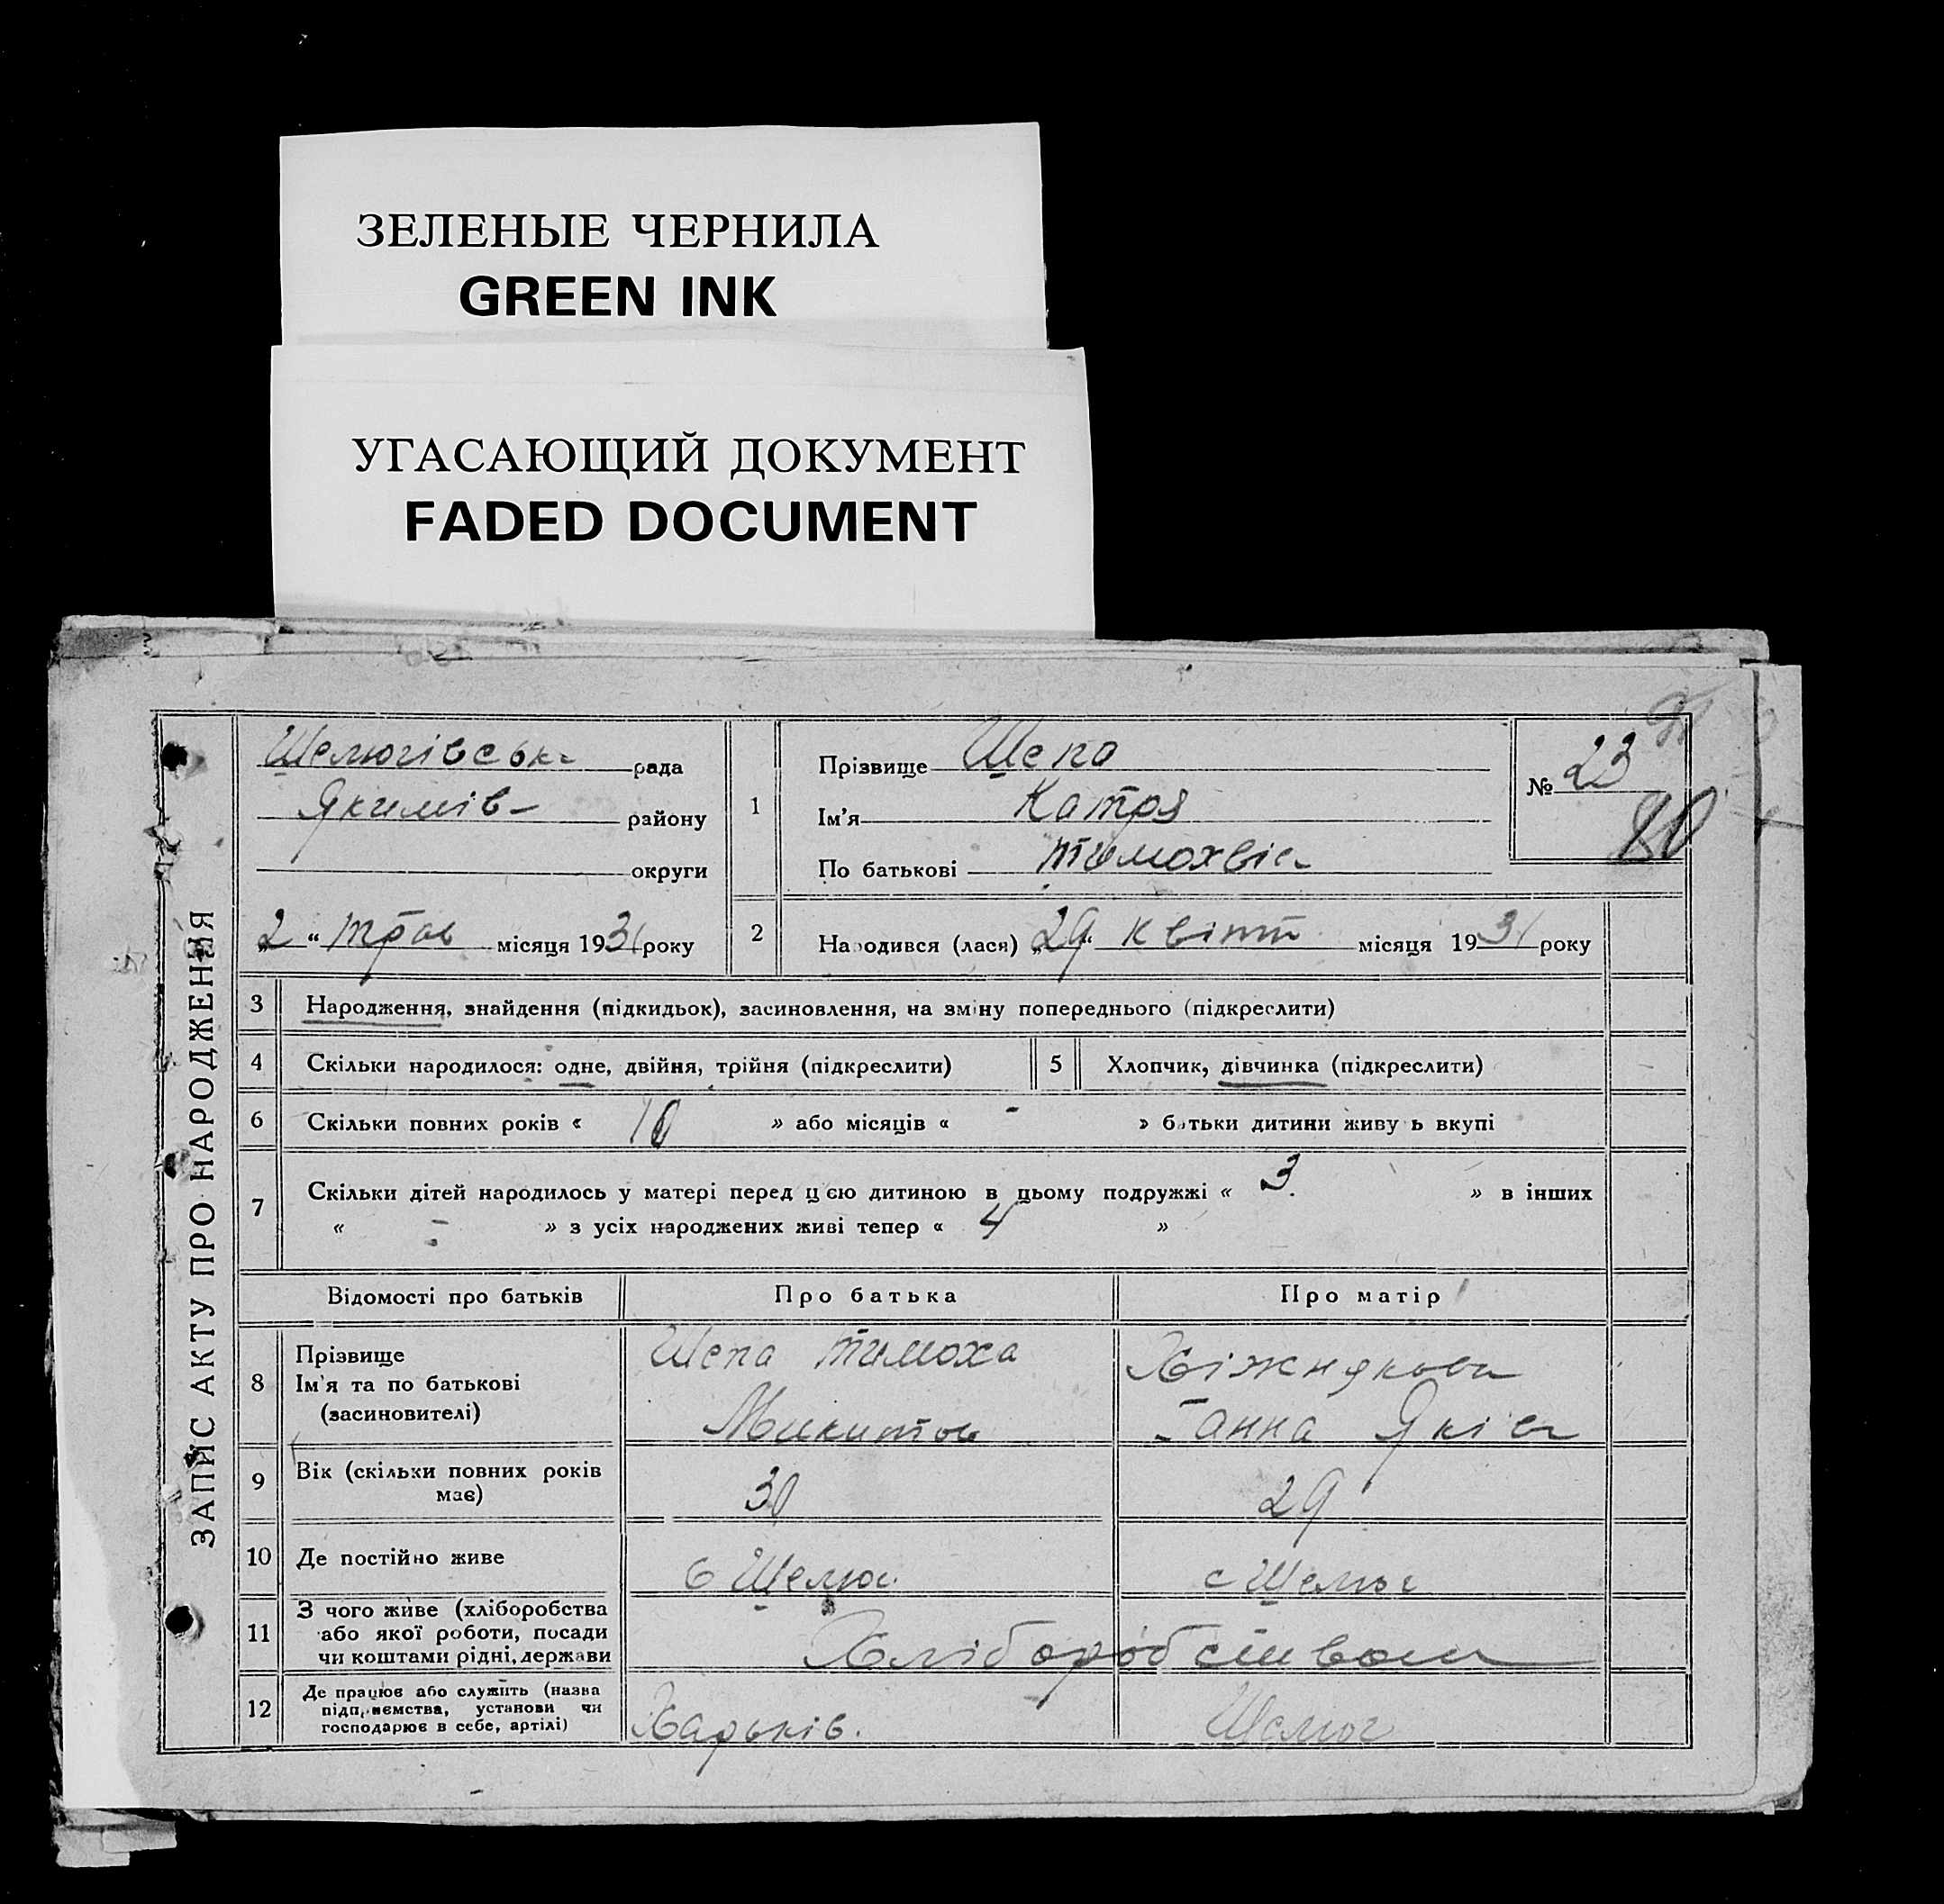 ЗЕЛЕНЫЕ ЧЕРНИЛА
GREEN INK
УГАСАЮЩИЙ ДОКУМЕНТ
FADED DOCUMENT
ЗАПИС АКТУ ПРО НАРОДЖЕННЯ
Щелюгівськ рада
Якимів- району
округи
„2“ трав місяця 1931 року
1
Прізвище Щепа
Ім'я Катря
По батькові Тимохвіє
№ 23
80
2
Народився (лася) „29“ квітн місяця 1931 року
3 Народження, знайдення (підкидьок), засиновлення, на зміну попереднього (підкреслити)
4 Скільки народилося: одне, двійня, трійня (підкреслити) 5 Хлопчик, дівчинка (підкреслити)
6 Скільки повних років « 10 » або місяців « - » батьки дитини живуть вкупі
7 Скільки дітей народилось у матері перед цією дитиною в цьому подружжі « 3 » в інших
« - » з усіх народжених живі тепер « 4 »
Відомості про батьків Про батька Про матір
8 Прізвище
Ім'я та по батькові
(засиновителі)
Щепа Тимоха
Микитов
Ганна Яківа
9 Вік (скільки повних років
має)
30 29
10 Де постійно живе с Щелюг. с Щелюг
11 З чого живе (хліборобства
або якої роботи, посади
чи коштами рідні, держави
Хліборобством
12 Де працює або служить (назва
підприємства, установи чи
господарює в себе, артілі)
Харьків. Щелюг